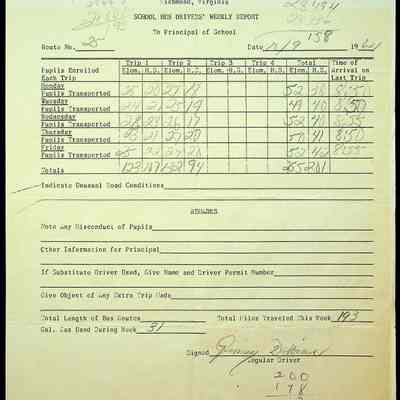 Richmond, Virginia
SCHOOL BUS DRIVERS' WEEKLY REPORT
To Principal of School
158
Route No. 2 Date 19
Trip 1 Trip 2 Trip 3 Trip 4 Total Time of
Pupils Enrolled Elem. H.S. Elem. H.S. Elem. H.S. Elem. H.S. Elem. H.S. Arrival on
Each Trip Last Trip
Monday
Pupils Transported 27 18 52 38 8:50
Tuesday
Pupils Transported 24 21 25 19 49 40 8:50
Wednesday
Pupils Transported 26 17 52 40 8:55
Thursday
Pupils Transported 21 27 20 50 41 8:50
Friday
Pupils Transported 25 27 20 52 42 8:55
Totals 123 107 132 94 255 201
Indicate Unusual Road Conditions
REMARKS
Note Any Misconduct of Pupils
Other Information for Principal
If Substitute Driver Used, Give Name and Driver Permit Number
Give Object of Any Extra Trip Made
Total Length of Bus Routes Total Miles Traveled This Week 193
Gal. Gas Used During Week 31
Signed
Regular Driver
200
178